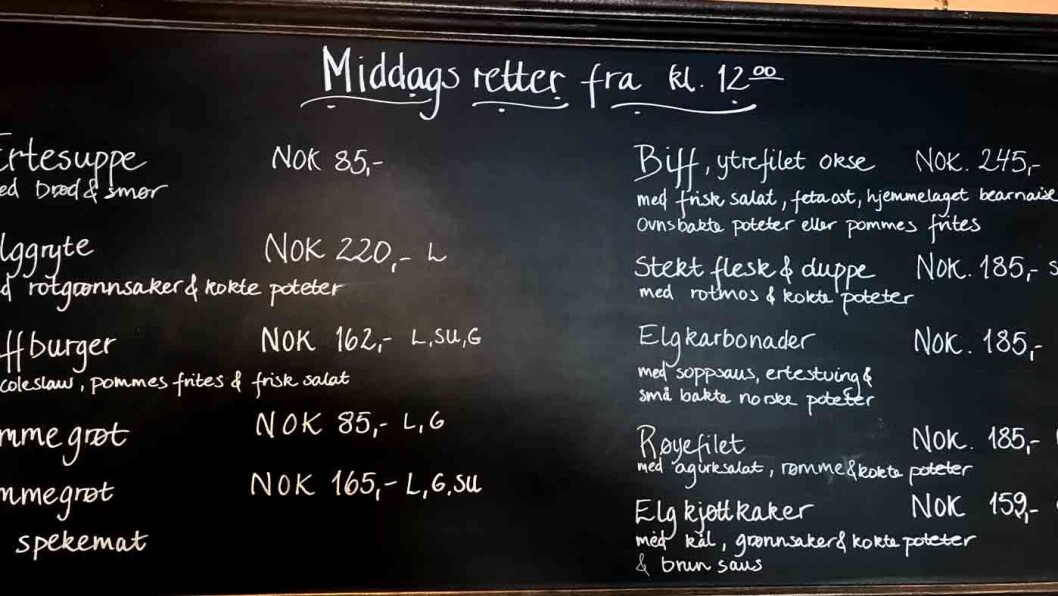 Middags retter fra kl. 12⁰⁰
Ertesuppe NOK 85,-
ed brød & smør
lggryte NOK 220,- L
d rotgrønnsaker & kokte poteter
ffburger NOK 162,- L,SU,G
coleslaw, pommes frites & frisk salat
mmegrøt NOK 85,- L,G
mmegrøt NOK 165,- L,G,SU
spekemat
Biff, ytrefilet okse NOK. 245,-
med frisk salat, fetaost, hjemmelaget bearnaise
Ovnsbakte poteter eller pommes frites
Stekt flesk & duppe NOK. 185,- S
med rotmos & kokte poteter
Elgkarbonader NOK. 185,-
med soppsaus, ertestuing &
små bakte norske poteter
Røyefilet NOK. 185,-
med agurksalat, rømme & kokte poteter
Elgkjøttkaker NOK 159,-
med kål, grønnsaker & kokte poteter
& brun saus